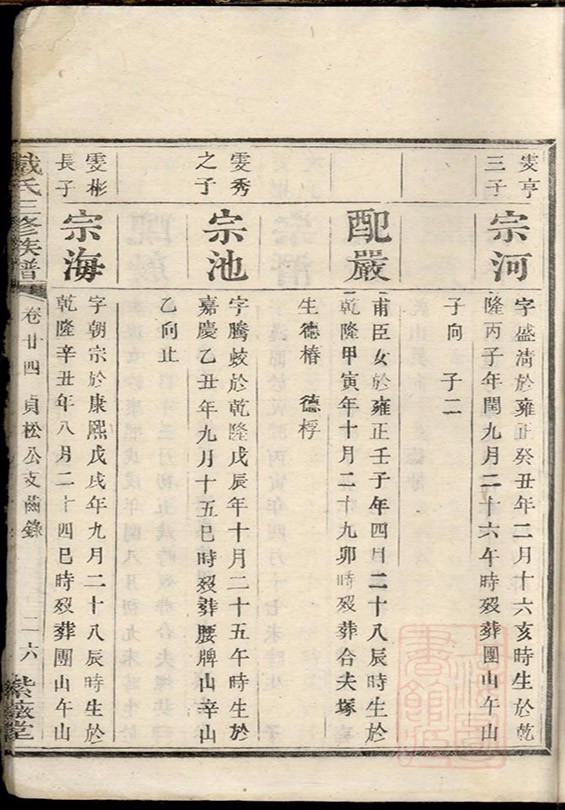 雯亨
三子
宗河
字盛淸於雍正癸丑年二月十六亥時生於乾
隆丙子年閏九月二十六午時歿葬團山午山
子向　子二
配嚴
甫臣女於雍正壬子年四月二十八辰時生於
乾隆甲寅年十月二十九卯時歿葬合夫塚
生德椿　德桴
雯秀
之子
宗池
字騰蛟於乾隆戊辰年十月二十五午時生於
嘉慶乙丑年九月十五巳時歿葬腰牌山辛山
乙向止
雯彬
長子
宗海
字朝宗於康熙戊戌年九月二十八辰時生於
乾隆辛丑年八月二十四巳時歿葬團山午山
戴氏三修族譜
卷廿四　貞松公支齒錄　二六
紫薇堂